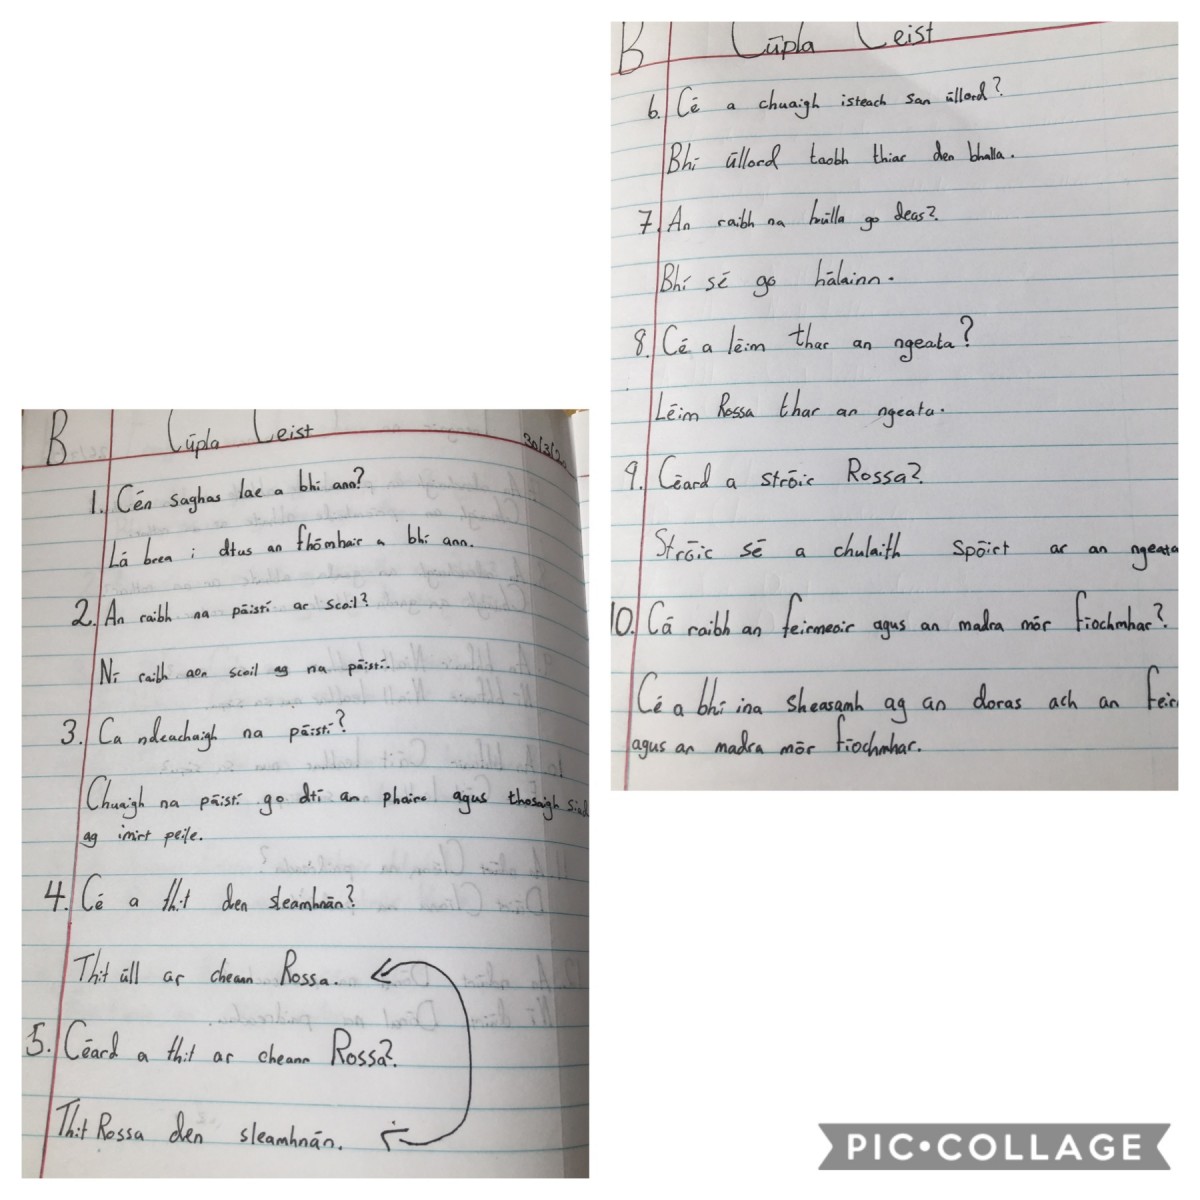 B Cūpla Ceist 30/3/20
1. Cén saghas lae a bhí ann?
Lá brea i dtus an fhōmhair a bhí ann.
2. An raibh na pāistí ar scoil?
Nī raibh aon scoil ag na pāistí.
3. Ca ndeachaigh na pāistí?
Chuaigh na pāistí go dtī an phairc agus thosaigh siad
ag imirt peile.
4. Cé a thit den sleamhnān?
Thit ūll ar cheann Rossa.
5. Cēard a thit ar cheann Rossa?
Thit Rossa den sleamhnān.
B Cūpla Ceist
6. Cē a chuaigh isteach san ūllord?
Bhí ūllord taobh thiar den bhalla.
7. An raibh na húlla go deas?
Bhí sē go hālainn.
8. Cē a lēim thar an ngeata?
Lēim Rossa thar an ngeata.
9. Cēard a strōic Rossa?
Strōic sē a chulaith spōirt ar an ngeata
10. Cā raibh an feirmeoir agus an madra mōr fīochmhar?
Cé a bhí ina sheasamh ag an doras ach an feir
agus an madra mōr fīochmhar.
PIC•COLLAGE